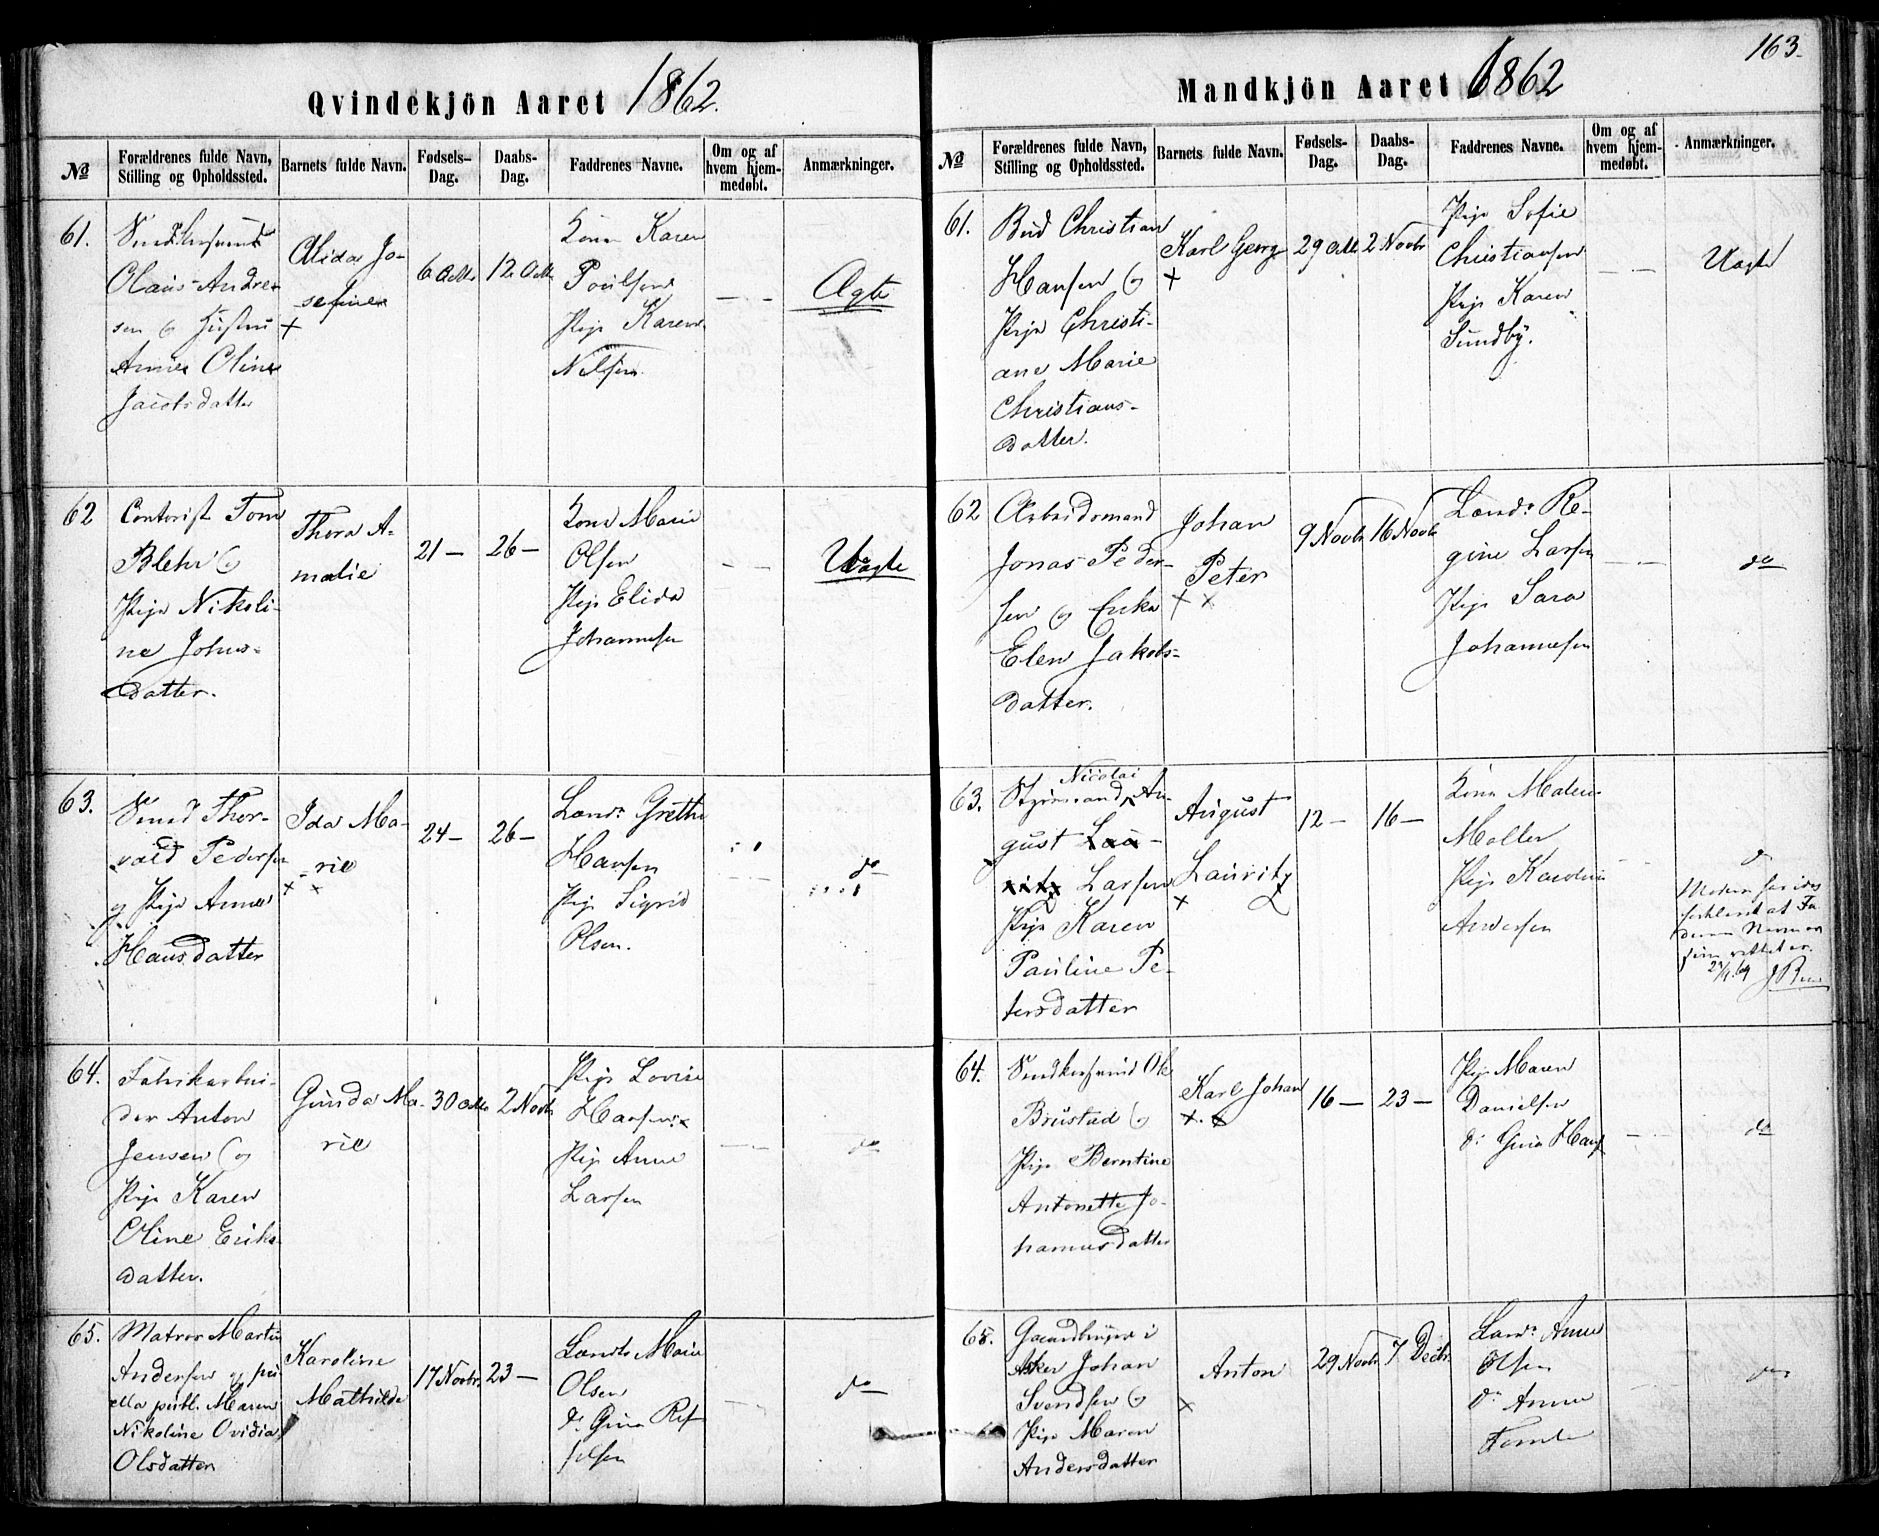 163.
Qvindekjön Aaret 1862.
№
Forældrenes fulde Navn, Stilling og Opholdssted.
Barnets fulde Navn.
Fødsels-Dag.
Daabs-Dag.
Faddrenes Navne.
Om og af hvem hjemmedøbt.
Anmærkninger.
61.
Olaus Andre-
sen og Hustru
Anne Oline
Jacobsdatter
Alida Jo-
sefine
+
6 Octbr
12 Octbr
Kone Karen
Poulsen
Pige Karen
Nilsen
Ægte
62
Contorist Tom
Blehr og
Pige Nikoli-
ne Johns-
datter.
Thora A-
malie
21 —
26 —
Kone Marie
Olsen
Pige Elida
Johannesen
Uægte
63.
Smed Thor-
vald Pedersen
og Pige Anne
Hansdatter
Ida Ma-
rie
+ +
24 —
26 —
Grethe
Hansen
Pige Sigrid
Olsen.
do
64.
Fabrikarbei-
der Anton
Jensen og
Pige Karen
Oline Eriks-
datter.
Gunda Ma-
rie
30 Octbr
2 Novbr
Pige Lovise
Hansen
Pige Anne
Larsen
do
65.
Matros Martin
Andersen og pu-
ella publ. Maren
Nikoline Ovidia
Olsdatter
Karoline
Mathilde
17 Novbr.
23 —
Marie
Olsen
do Gina
do
Mandkjön Aaret 1862
№
Forældrenes fulde Navn, Stilling og Opholdssted.
Barnets fulde Navn.
Fødsels-Dag.
Daabs-Dag.
Faddrenes Navne.
Om og af hvem hjemmedøbt.
Anmærkninger.
61.
Bud Christian
Hansen og
Pige Christi-
ane Marie
Christians-
datter.
Karl Georg
+
29 Octbr
2 Novbr
Pige Sofie
Christiansen
Pige Karen
Sundby.
Uægte
62
Arbeidsmand
Jonas Peder-
sen og Enke
Elen Jakobs-
datter.
Johan
Peter
+ ×
9 Novbr
16 Novbr
Re-
gine Larsen
Pige Sara
Johannesen
do
63.
Nicolai
Styrmand Au-
gust Lau-
ritz Larsen
Pige Karen
Pauline Pe-
tersdatter
August
Lauritz
×
12 —
16 —
Kone Malene
Møller
Pige Karoline
Andersen
64.
Ole
Brustad og
Pige Berntine
Antonette Jo-
hannesdatter
Karl Johan
+ ×
16 —
23 —
Pige Maren
Danielsen
do Gina Hans
do
65.
Gaardbruger i
Asker Johan
Svendsen og
Pige Maren
Andersdatter
Anton
×
29 Novbr
7 Decbr.
Anne
Olsen
do Anne
do